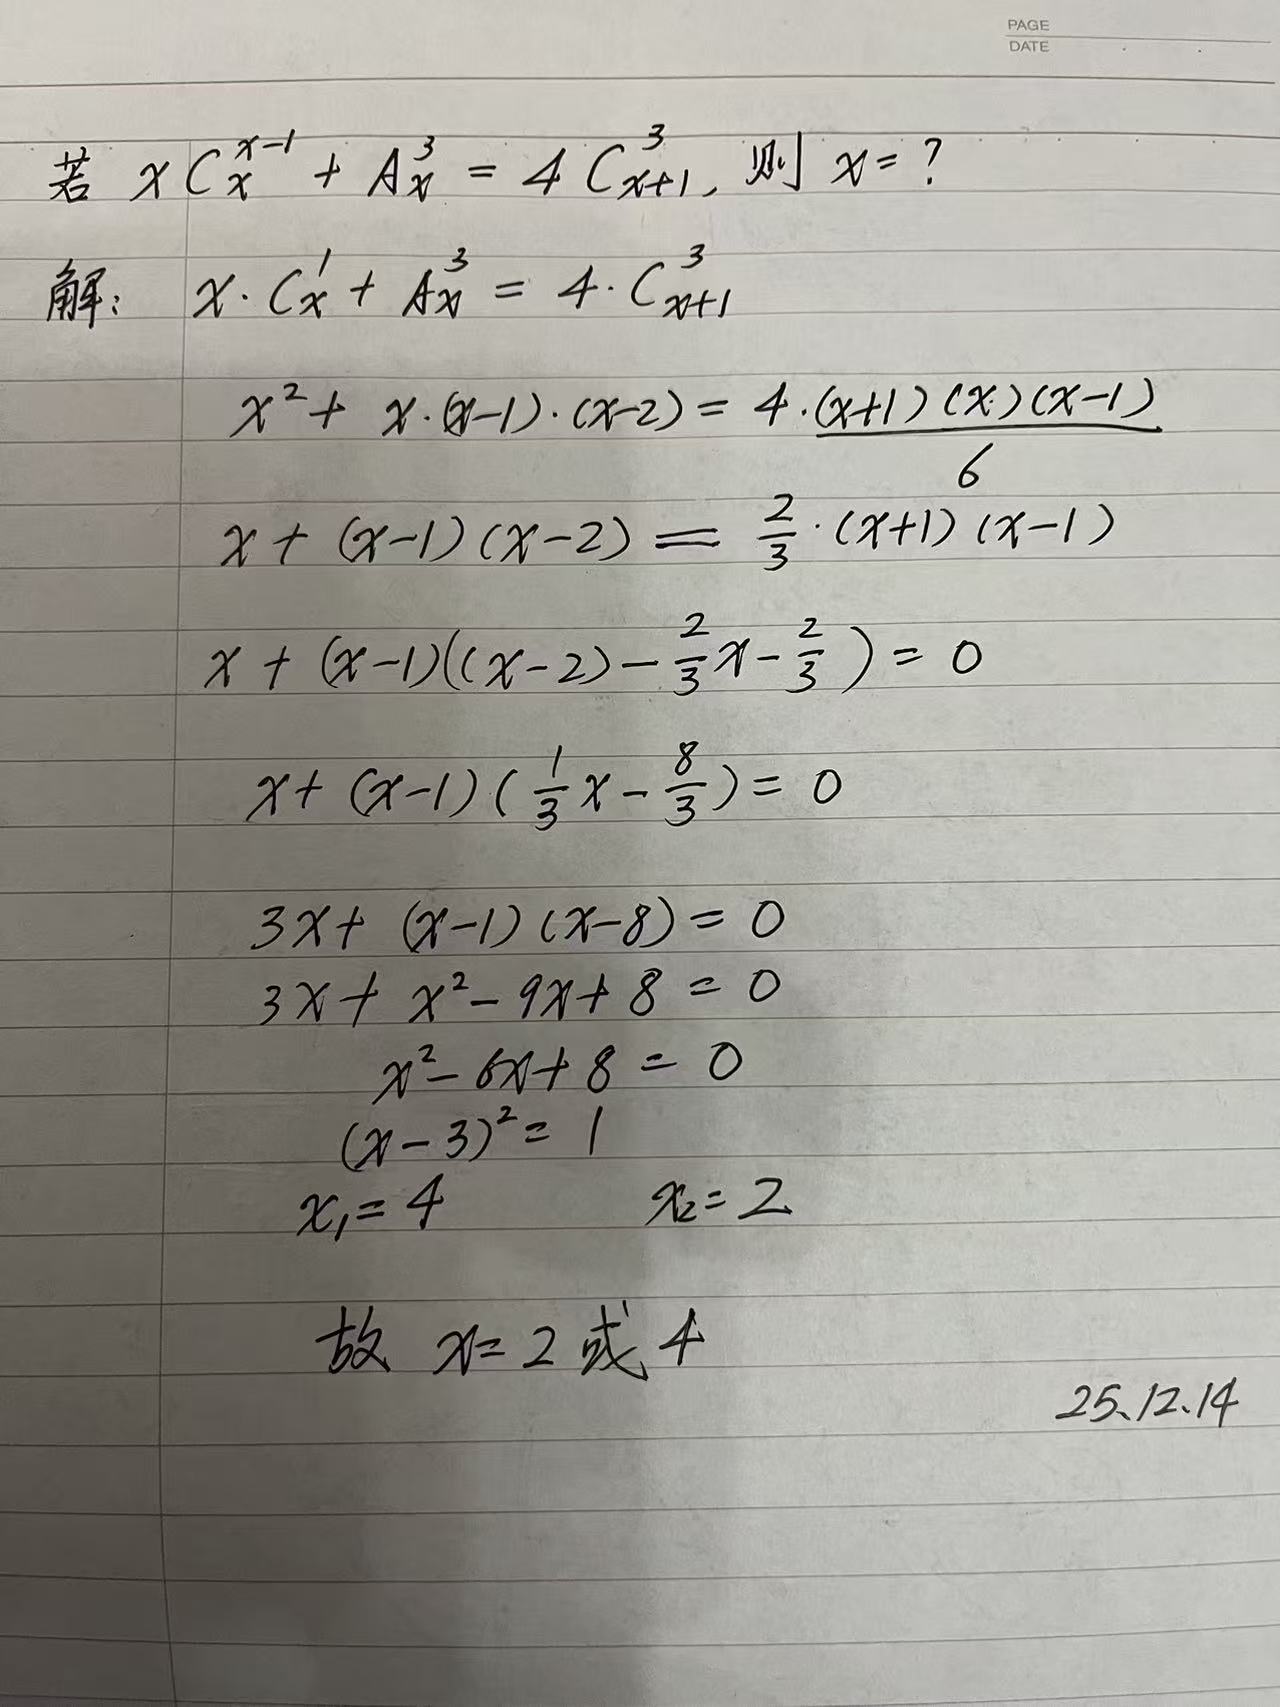 PAGE
DATE
若 xC_x^{x-1} + A_x^3 = 4C_{x+1}^3, 则 x = ?
解: x·C_x^1 + A_x^3 = 4·C_{x+1}^3
x^2 + x·(x-1)·(x-2) = 4·\frac{(x+1)(x)(x-1)}{6}
x + (x-1)(x-2) = \frac{2}{3}·(x+1)(x-1)
x + (x-1)((x-2) - \frac{2}{3}x - \frac{2}{3}) = 0
x + (x-1)(\frac{1}{3}x - \frac{8}{3}) = 0
3x + (x-1)(x-8) = 0
3x + x^2 - 9x + 8 = 0
x^2 - 6x + 8 = 0
(x-3)^2 = 1
x_1 = 4 x_2 = 2
故 x = 2 或 4
25.12.14